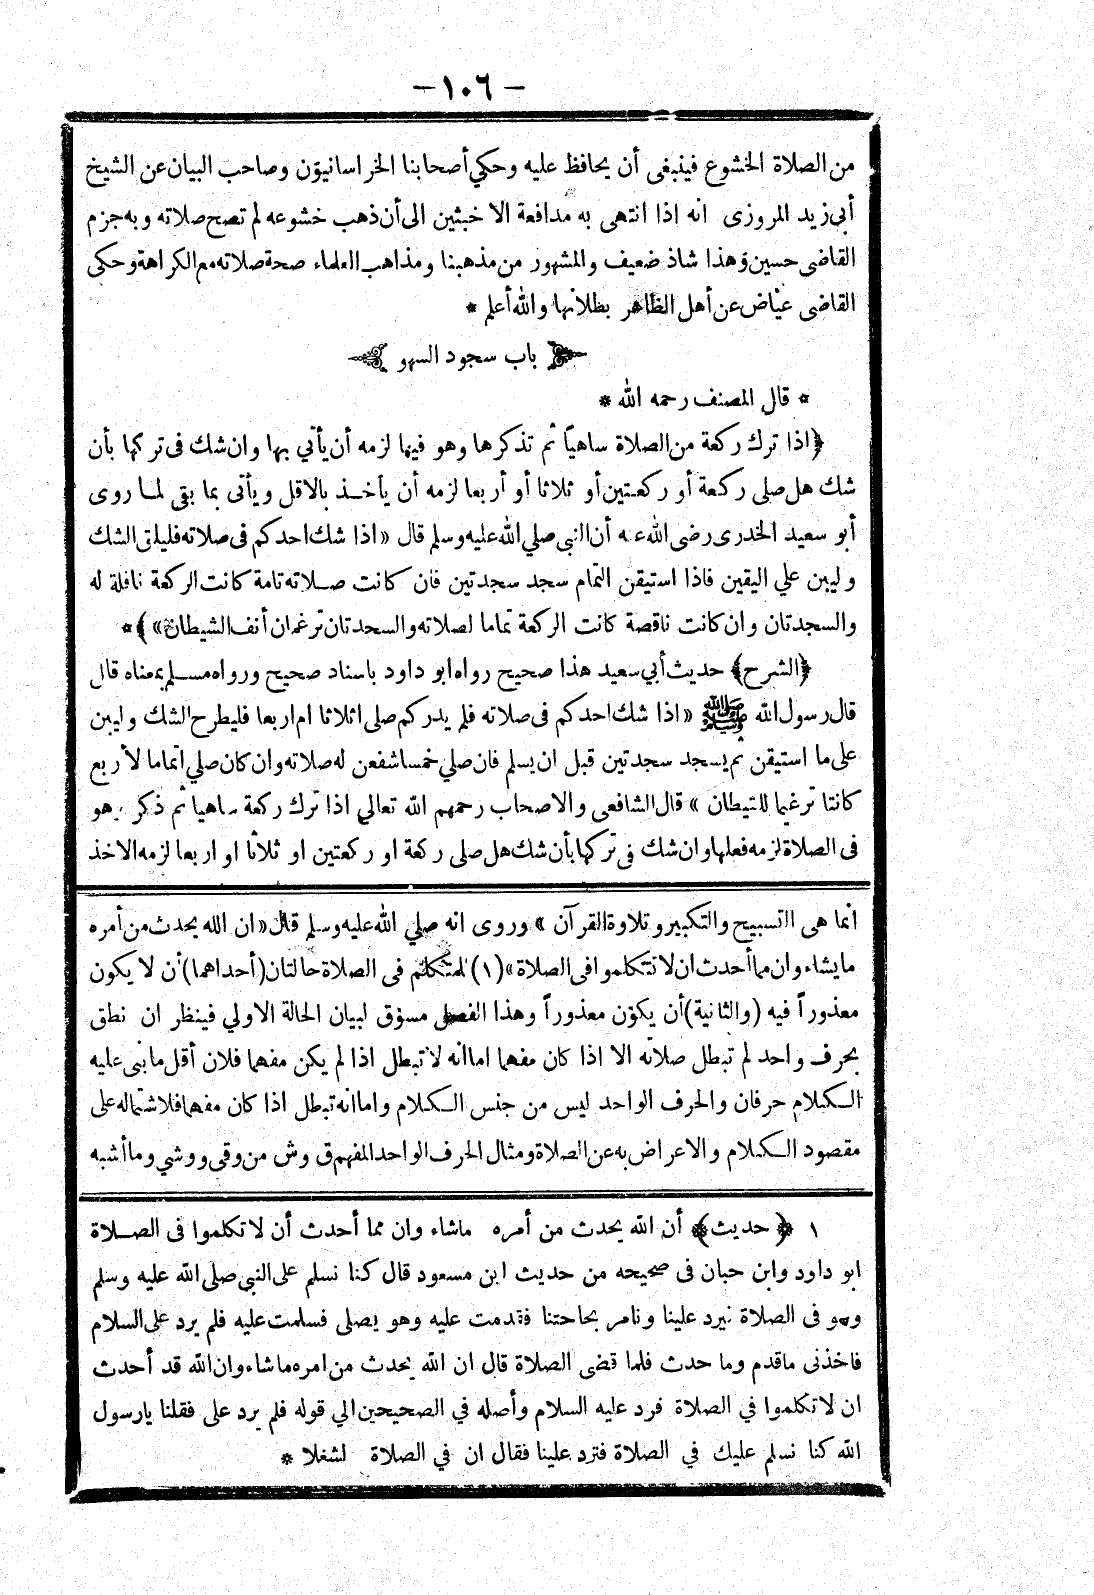 — ١٠٦ —
من الصلاة الخشوع فينبغى أن يحافظ عليه وحكي أصحابنا الخراسانيون وصاحب البيان عن الشيخ
أبى زيد المروزى انه اذا انتهى به مدافعة الاخبثين الى أن ذهب خشوعه لم تصح صلاته وبه جزم
القاضى حسين وهذا شاذ ضعيف والمشهور من مذهبنا ومذاهب العلماء صحة صلاته مع الكراهة وحكى
القاضى عياض عن أهل الظاهر بطلانها والله أعلم *
باب سجود السهو
* قال المصنف رحمه الله *
﴿اذا ترك ركعة من الصلاة ساهيًا ثم تذكرها وهو فيها لزمه أن يأتي بها وان شك فى تركها بأن
شك هل صلى ركعة أو ركعتين أو ثلاثا أو أربعا لزمه أن يأخذ بالاقل ويأتى بما بقى لما روى
أبو سعيد الخدرى رضى الله عنه أن النبى صلي الله عليه وسلم قال «اذا شك احدكم فى صلاته فليلق الشك
وليبن علي اليقين فاذا استيقن التمام سجد سجدتين فان كانت صلاته تامة كانت الركعة نافلة له
والسجدتان وان كانت ناقصة كانت الركعة تماما لصلاته والسجدتان ترغمان أنف الشيطان» ﴾ *
﴿الشرح﴾ حديث أبي سعيد هذا صحيح رواه ابو داود باسناد صحيح ورواه مسلم بمعناه قال
قال رسول الله ﷺ «اذا شك احدكم فى صلاته فلم يدر كم صلى اثلاثا ام اربعا فليطرح الشك وليبن
على ما استيقن ثم يسجد سجدتين قبل ان يسلم فان صلي خمسا شفعن له صلاته وان كان صلي اتماما لأربع
كانتا ترغيما للشيطان » قال الشافعى والاصحاب رحمهم الله تعالي اذا ترك ركعة ساهيا ثم ذكر وهو
فى الصلاة لزمه فعلها وان شك فى تركها بأن شك هل صلى ركعة او ركعتين او ثلاثا او اربعا لزمه الاخذ
انما هى التسبيح والتكبير وتلاوة القرآن » وروى انه صلي الله عليه وسلم قال «ان الله يحدث من أمره
ما يشاء وان مما أحدث ان لا تتكلموا فى الصلاة» (١) للمتكلم فى الصلاة حالتان (أحداهما) أن لا يكون
معذوراً فيه (والثانية) أن يكون معذوراً وهذا الفصل مسوق لبيان الحالة الاولي فينظر ان نطق
بحرف واحد لم تبطل صلاته الا اذا كان مفهما اما انه لا تبطل اذا لم يكن مفهما فلان أقل ما ينبى عليه
الكلام حرفان والحرف الواحد ليس من جنس الكلام واما انه تبطل اذا كان مفهما فلاشتماله على
مقصود الكلام والاعراض به عن الصلاة ومثال الحرف الواحد المفهم ق وش من وقى ووشي وما أشبه
١ ﴿ حديث ﴾ أن الله يحدث من أمره ماشاء وان مما أحدث أن لا تكلموا فى الصلاة
ابو داود وابن حبان فى صحيحه من حديث ابن مسعود قال كنا نسلم على النبي صلى الله عليه وسلم
وهو فى الصلاة فيرد علينا ونامر بحاجتنا فقدمت عليه وهو يصلى فسلمت عليه فلم يرد على السلام
فاخذنى ماقدم وما حدث فلما قضى الصلاة قال ان الله يحدث من امره ماشاء وان الله قد أحدث
ان لا تكلموا في الصلاة فرد عليه السلام وأصله في الصحيحين الي قوله فلم يرد على فقلنا يارسول
الله كنا نسلم عليك في الصلاة فترد علينا فقال ان في الصلاة لشغلا *